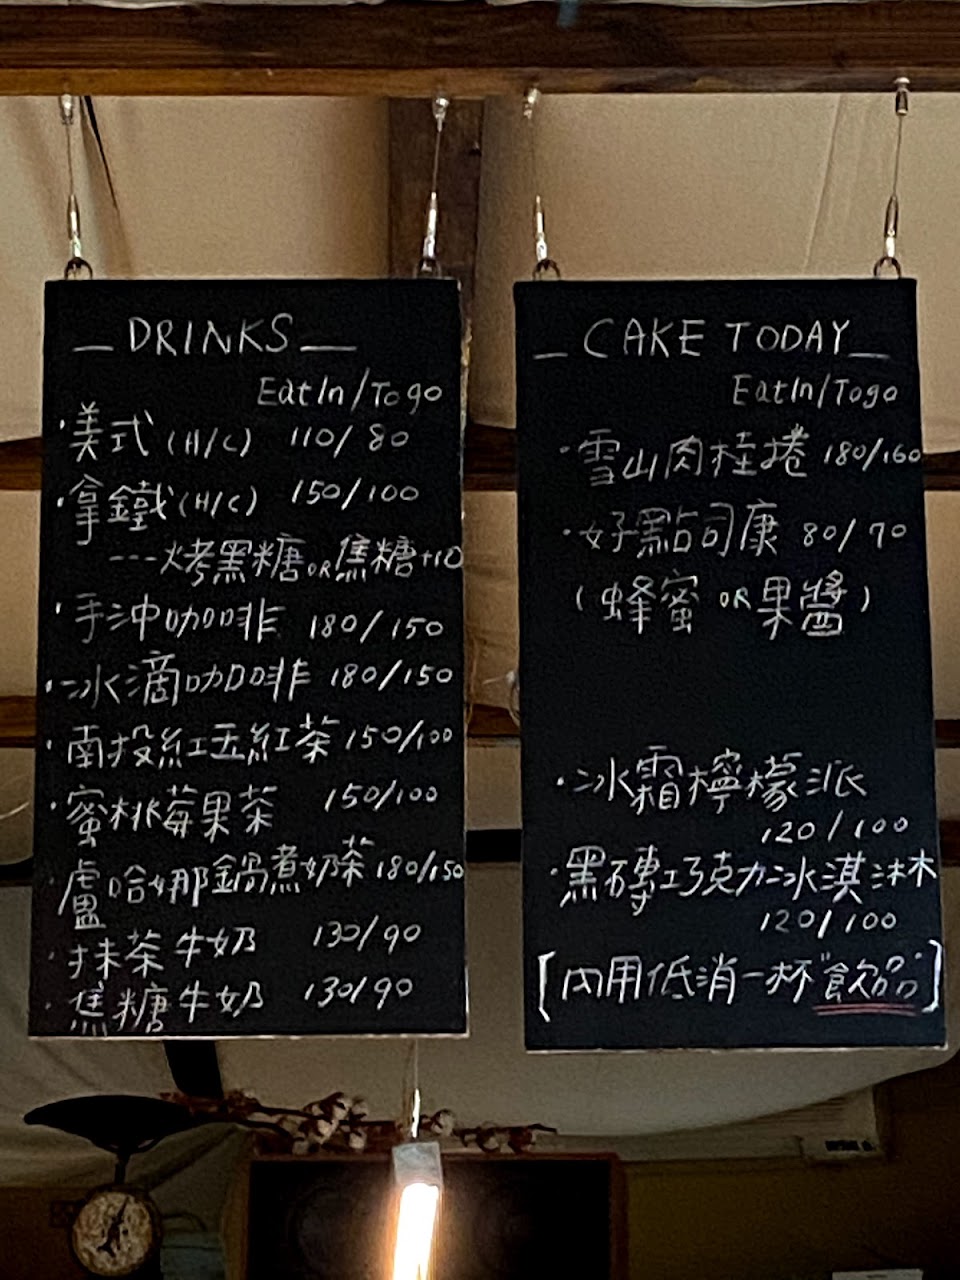 DRINKS
EatIn/Togo
·美式(H/C) 110/80
·拿鐵(H/C) 150/100
---烤黑糖OR焦糖+10
·手沖咖啡 180/150
·冰滴咖啡 180/150
·南投紅玉紅茶 150/100
·蜜桃莓果茶 150/100
·盧哈娜鍋煮奶茶 180/150
·抹茶牛奶 130/90
·焦糖牛奶 130/90
CAKE TODAY
EatIn/Togo
·雪山肉桂捲 180/160
·好點司康 80/70
(蜂蜜OR果醬)
·冰霜檸檬派
120/100
·黑磚巧克力冰淇淋
120/100
[內用低消一杯"飲品"]